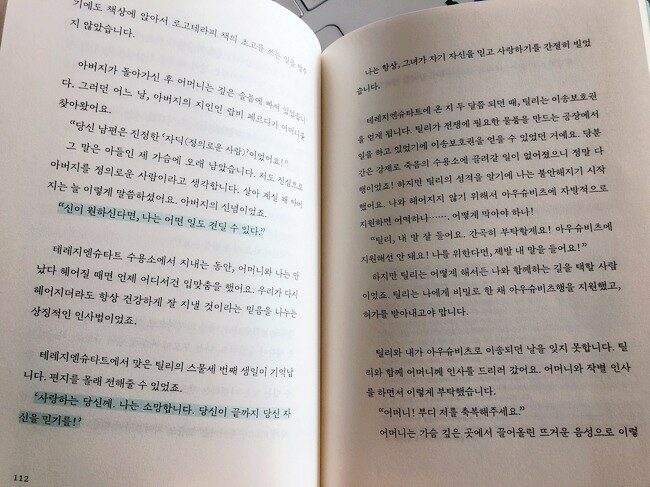 기에도 책상에 앉아서 로고테라피 책의 초고를 쓰는 일을 멈추
지 않았습니다.
아버지가 돌아가신 후 어머니는 깊은 슬픔에 빠져 있었습니
다. 그러던 어느 날, 아버지의 지인인 랍비 페르다가 어머니를
찾아왔어요.
“당신 남편은 진정한 ‘자딕(정의로운 사람)’이었어요!”
그 말은 아들인 제 가슴에 오래 남았습니다. 저도 진심으로
아버지를 정의로운 사람이라고 생각합니다. 살아 계실 때 아버
지는 늘 이렇게 말씀하셨어요. 아버지의 신념이었죠.
“신이 원하신다면, 나는 어떤 일도 견딜 수 있다.”
테레지엔슈타트 수용소에서 지내는 동안, 어머니와 나는 만
났다 헤어질 때면 언제 어디서건 입맞춤을 했어요. 우리가 다시
헤어지더라도 항상 건강하게 잘 지낼 것이라는 믿음을 나누는
상징적인 인사법이었죠.
테레지엔슈타트에서 맞은 틸리의 스물세 번째 생일이 기억납
니다. 편지를 몰래 전해줄 수 있었죠.
‘사랑하는 당신께. 나는 소망합니다. 당신이 끝까지 당신 자
신을 믿기를!’
112
나는 항상, 그녀가 자기 자신을 믿고 사랑하기를 간절히 빌었
습니다.
테레지엔슈타트에 온 지 두 달쯤 되면 때, 틸리는 이송보호권
을 얻게 됩니다. 틸리가 전쟁에 필요한 물품을 만드는 공장에서
일을 하고 있었기에 이송보호권을 얻을 수 있었던 거예요. 당분
간은 강제로 죽음의 수용소에 끌려갈 일이 없어졌으니 정말 다
행이었죠! 하지만 틸리의 성격을 알기에 나는 불안해지기 시작
했어요. 나와 헤어지지 않기 위해서 아우슈비츠에 자발적으로
지원하면 어떡하나……. 어떻게 막아야 하나!
“틸리, 내 말 잘 들어요. 간곡히 부탁할게요! 아우슈비츠에
지원해선 안 돼요! 나를 위한다면, 제발 내 말을 들어요!”
하지만 틸리는 어떻게 해서든 나와 함께하는 길을 택할 사람
이었죠. 틸리는 나에게 비밀로 한 채 아우슈비츠행을 지원했고,
허가를 받아내고야 맙니다.
틸리와 내가 아우슈비츠로 이송되던 날을 잊지 못합니다. 틸
리와 함께 어머니께 인사를 드리러 갔어요. 어머니와 작별 인사
를 하면서 이렇게 부탁했습니다.
“어머니! 부디 저를 축복해주세요.”
어머니는 가슴 깊은 곳에서 끌어올린 뜨거운 음성으로 이렇